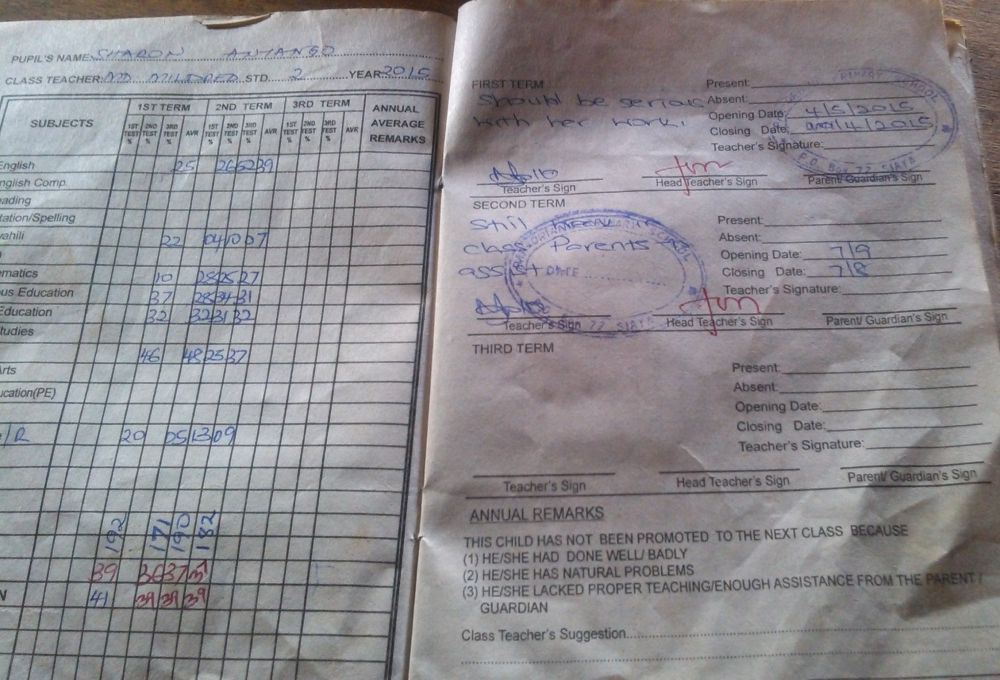 PUPIL'S NAME SHARON ANYANGO
CLASS TEACHER: MILDRED STD. 2 YEAR 2015
SUBJECTS 1ST TERM 2ND TERM 3RD TERM ANNUAL AVERAGE REMARKS
1ST TEST % 2ND TEST % 3RD TEST % AVR 1ST TEST % 2ND TEST % 3RD TEST % AVR 1ST TEST % 2ND TEST % 3RD TEST % AVR
English 25 26 52 39
nglish Comp.
eading
tation/Spelling
vahili 22 04 10 07
ematics 10 28 25 27
ous Education 37 28 34 31
Education 32 32 31 32
tudies
46 48 25 37
Arts
ucation(PE)
/R 20 05 13 09
192 171 190 182
39 36 37
N 41 39 39 39
FIRST TERM
Should be serious
with her work.
Present:
Absent:
Opening Date: 4/5/2015
Closing Date: /4/2015
Teacher's Signature:
Teacher's Sign Head Teacher's Sign Parent/ Guardian's Sign
SECOND TERM
Still
class Parents
assist
DATE
Present:
Absent:
Opening Date: 7/9
Closing Date: 7/8
Teacher's Signature:
Teacher's Sign Head Teacher's Sign Parent/ Guardian's Sign
THIRD TERM
Present:
Absent:
Opening Date:
Closing Date:
Teacher's Signature:
Teacher's Sign Head Teacher's Sign Parent/ Guardian's Sign
ANNUAL REMARKS
THIS CHILD HAS NOT BEEN PROMOTED TO THE NEXT CLASS BECAUSE
(1) HE/SHE HAD DONE WELL/ BADLY
(2) HE/SHE HAS NATURAL PROBLEMS
(3) HE/SHE LACKED PROPER TEACHING/ENOUGH ASSISTANCE FROM THE PARENT /
GUARDIAN
Class Teacher's Suggestion